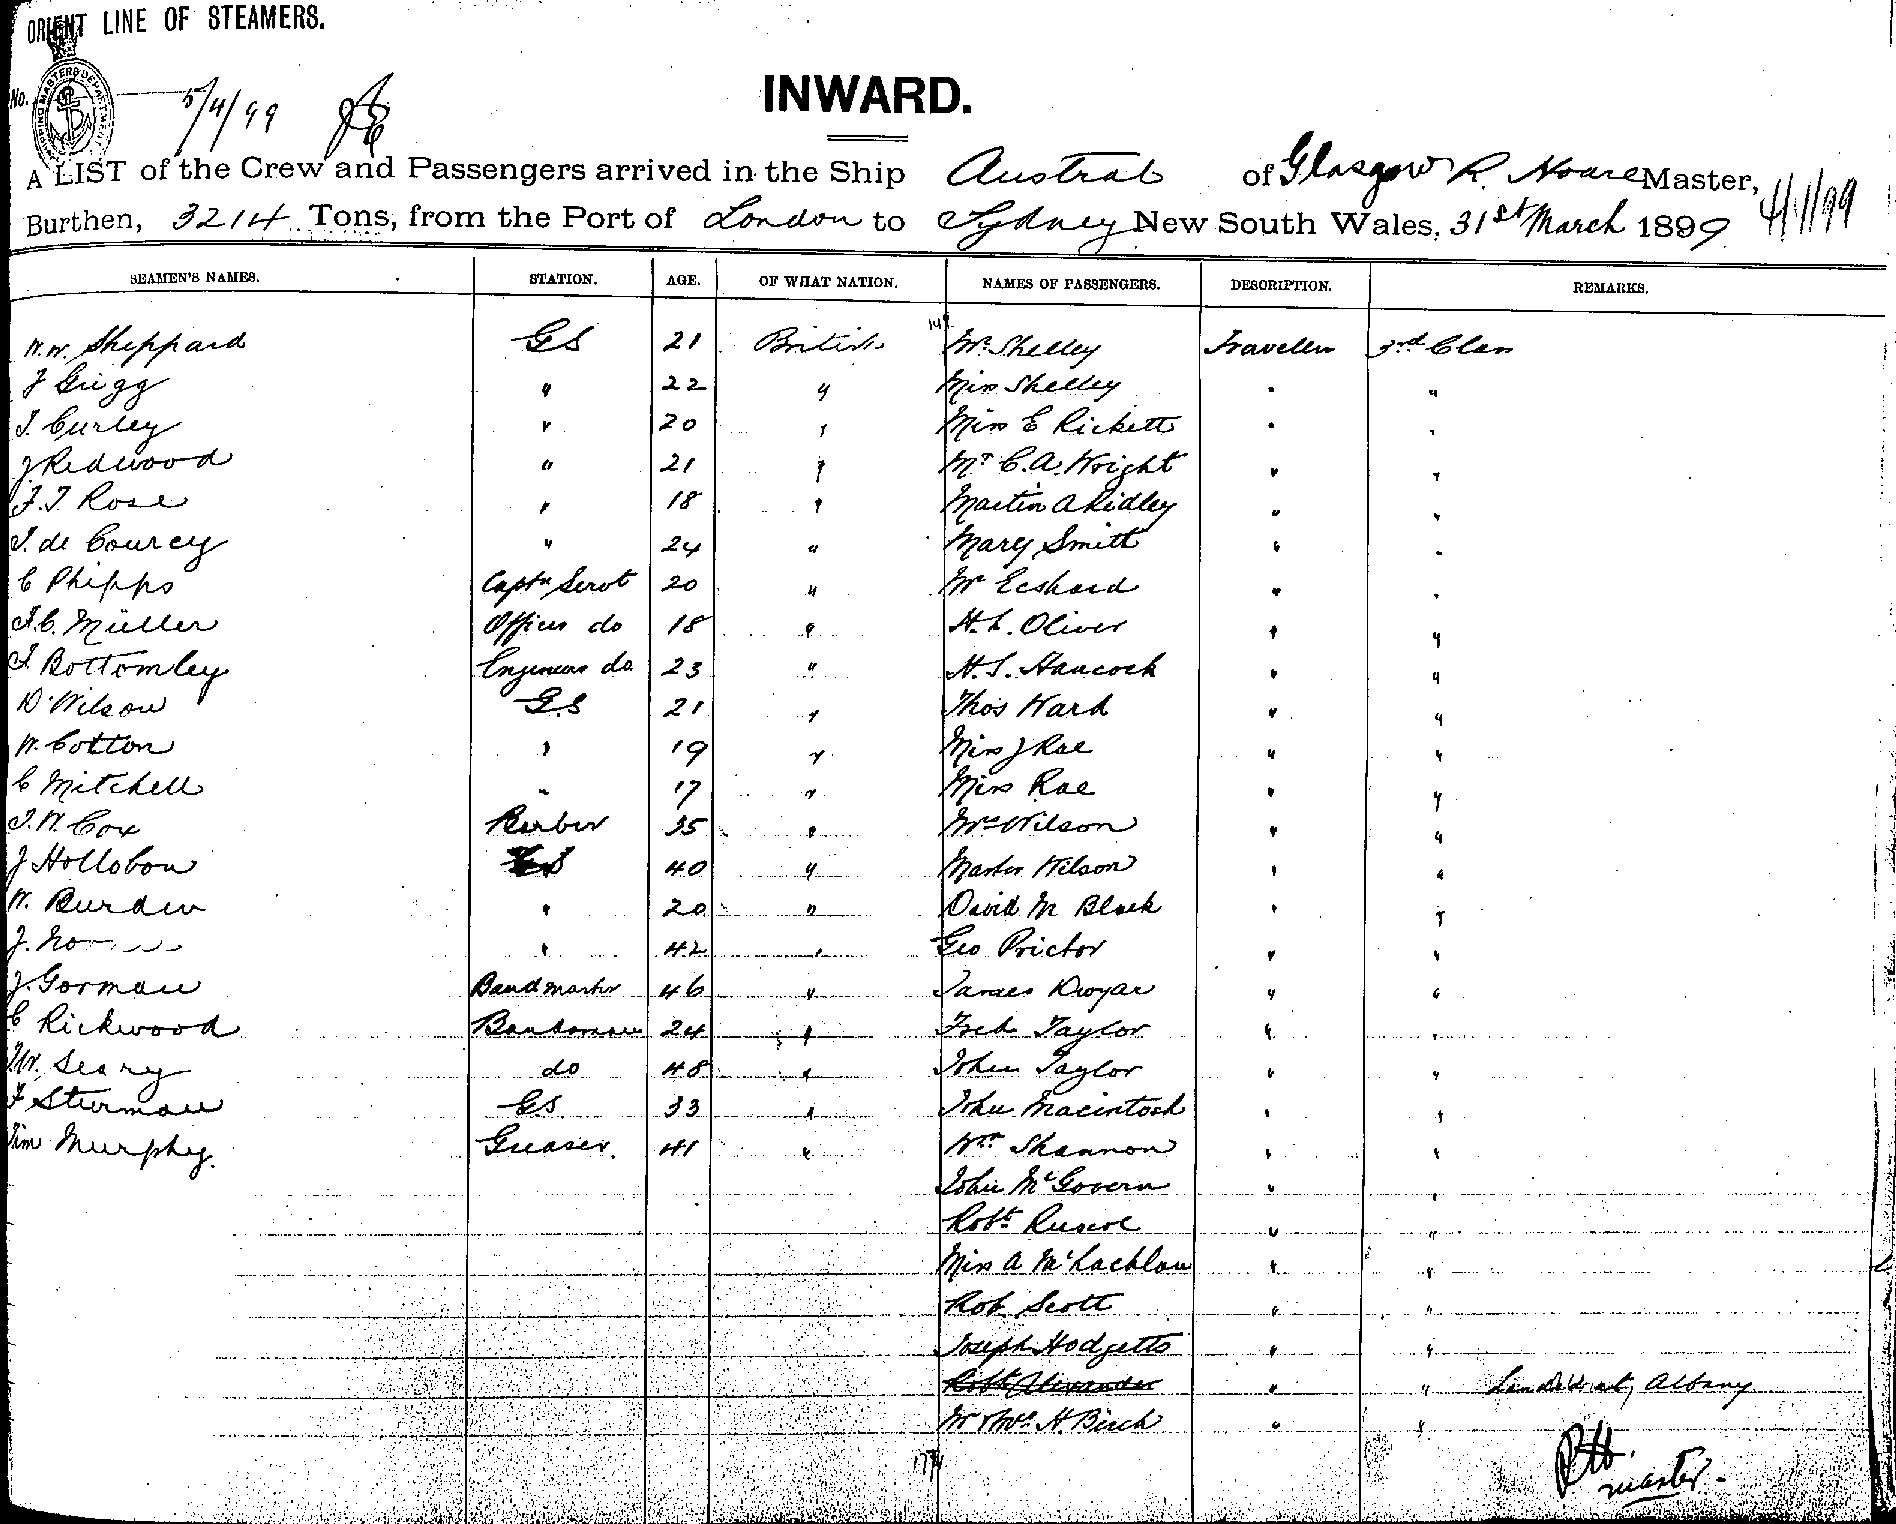 ORIENT LINE OF STEAMERS.
No.
5/4/99
INWARD.
A LIST of the Crew and Passengers arrived in the Ship Austral of Glasgow R. Hoare Master,
Burthen, 3214 Tons, from the Port of London to Sydney New South Wales, 31st March 1899
SEAMEN'S NAMES. STATION. AGE. OF WHAT NATION. NAMES OF PASSENGERS. DESCRIPTION. REMARKS.
W.W. Sheppard GS 21 British Mr Shelley Traveller 3rd Class
J Grigg " 22 " Miss Shelley " "
T. Curley " 20 " Miss E Rickett " "
J Redwood " 21 " Mr C.A. Wright " "
F.T. Rose " 18 " Martin A Ridley " "
T. de Courcy " 24 " Mary Smith " "
C Phipps Captn Servt 20 " Mr Eckhard " "
T.C. Müller Officers do 18 " H.L. Oliver " "
T. Bottomley Engineers do 23 " H.S. Hancock " "
D. Wilson G.S 21 " Thos Ward " "
W. Cotton " 19 " Miss J Rae " "
C Mitchell " 17 " Miss Rae " "
T.W. Cox Barber 35 " Mrs Wilson " "
J Hollobon GS 40 " Master Wilson " "
W. Burden " 20 " David M Black " "
J. " 42 " Geo Prictor " "
J. Gorman Bandmaster 46 " James Dwyar " "
C Rickwood Bandsman 24 " Fred Taylor " "
W. Seary do 48 " John Taylor " "
F Sturman GS 33 " John Macintosh " "
Tim Murphy. Greaser. 41 " Wm Shannon " "
John McGovern " "
Robt Ruscoe " "
Miss A McLachlan " "
Rob Scott " "
Joseph Hodgetts " "
Robt Alexander " " Landed at Albany
Mr & Mrs H. Birch " "
Master